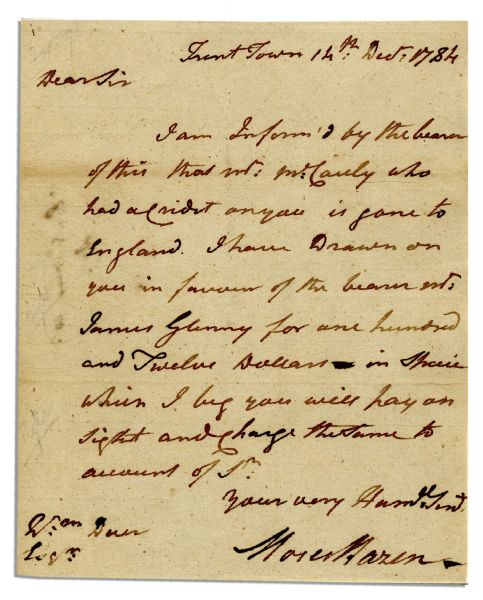 Trent Town 14th. Decr. 1784
Dear Sir
I am Inform'd by the bearer
of this that Mr. McCauly who
had a Cridit on you is gone to
England. I have Drawn on
you in favour of the bearer Mr.
James Glenny for one hundred
and Twelve Dollars in
which I beg you will pay on
sight and Charge the same to
account of Sr.
your very Humle. Servt.
Wm. Duer
Esqr.
Moses Hazen